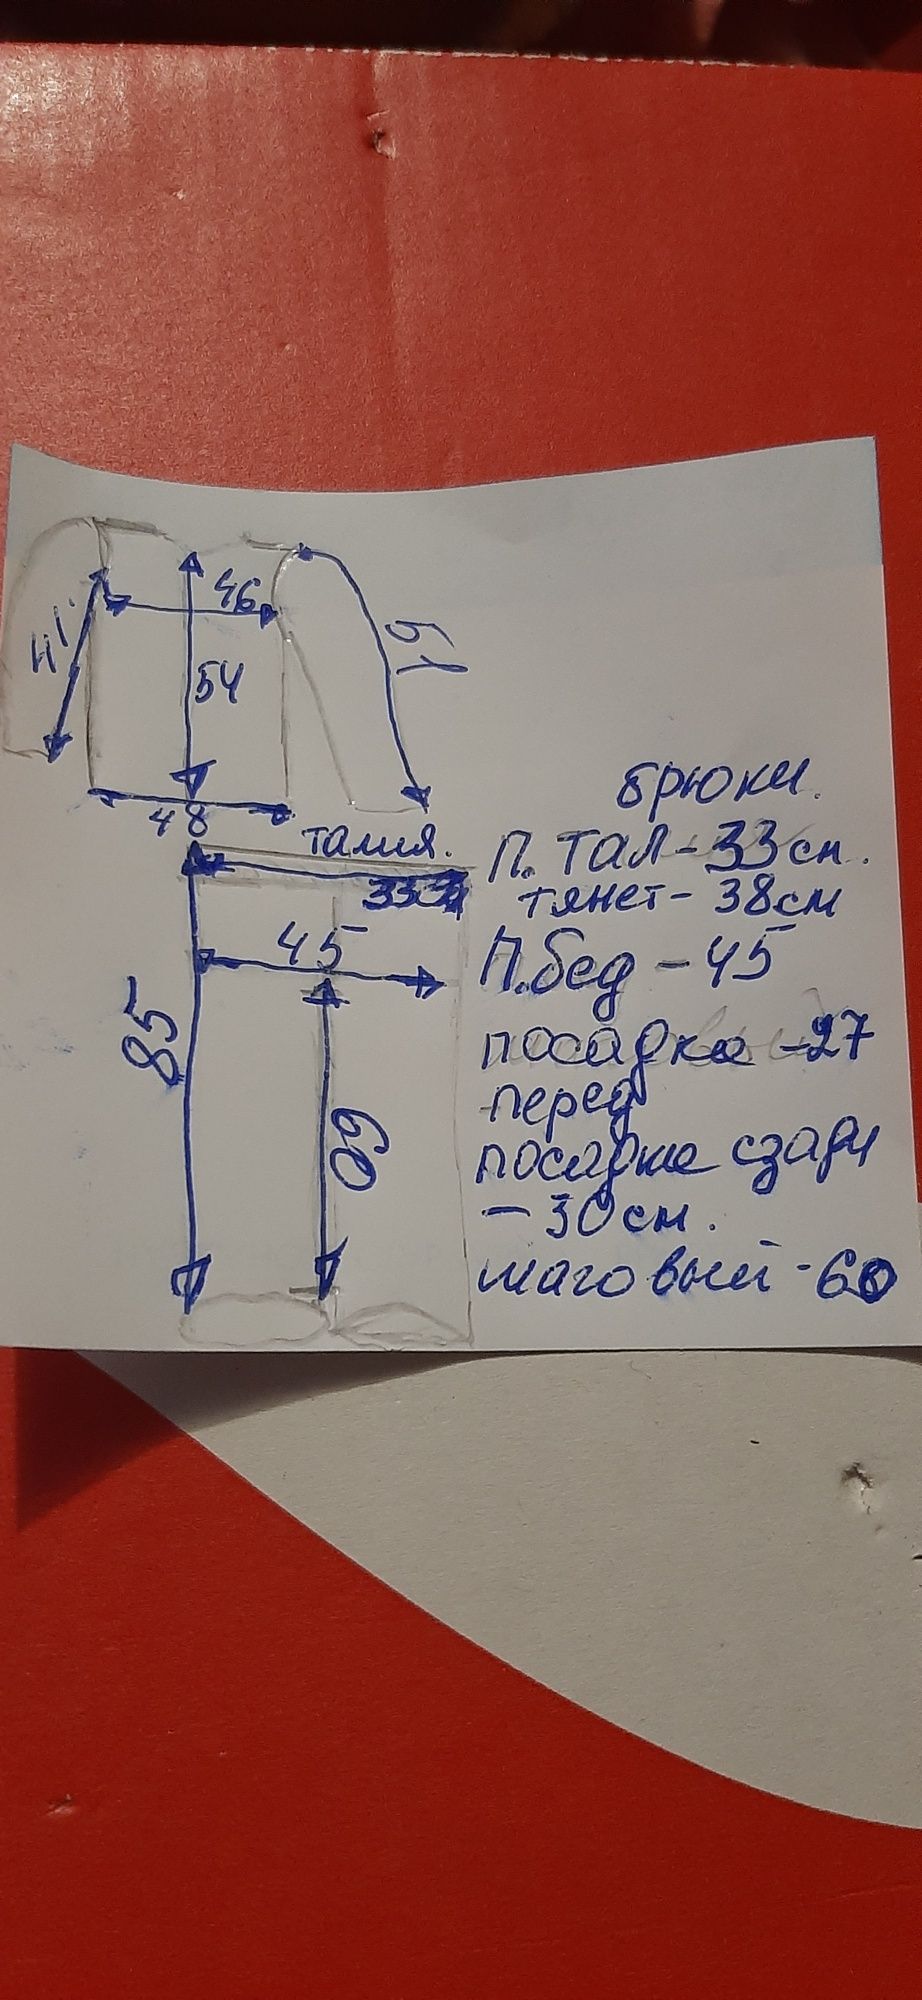 46
51
41
54
48
талия.
33
45
85
60
брюки.
П. тал - 33 см.
тянет - 38 см
П. бед - 45
посадка - 27
перед
посадка сзади
- 30 см.
шаговый - 60